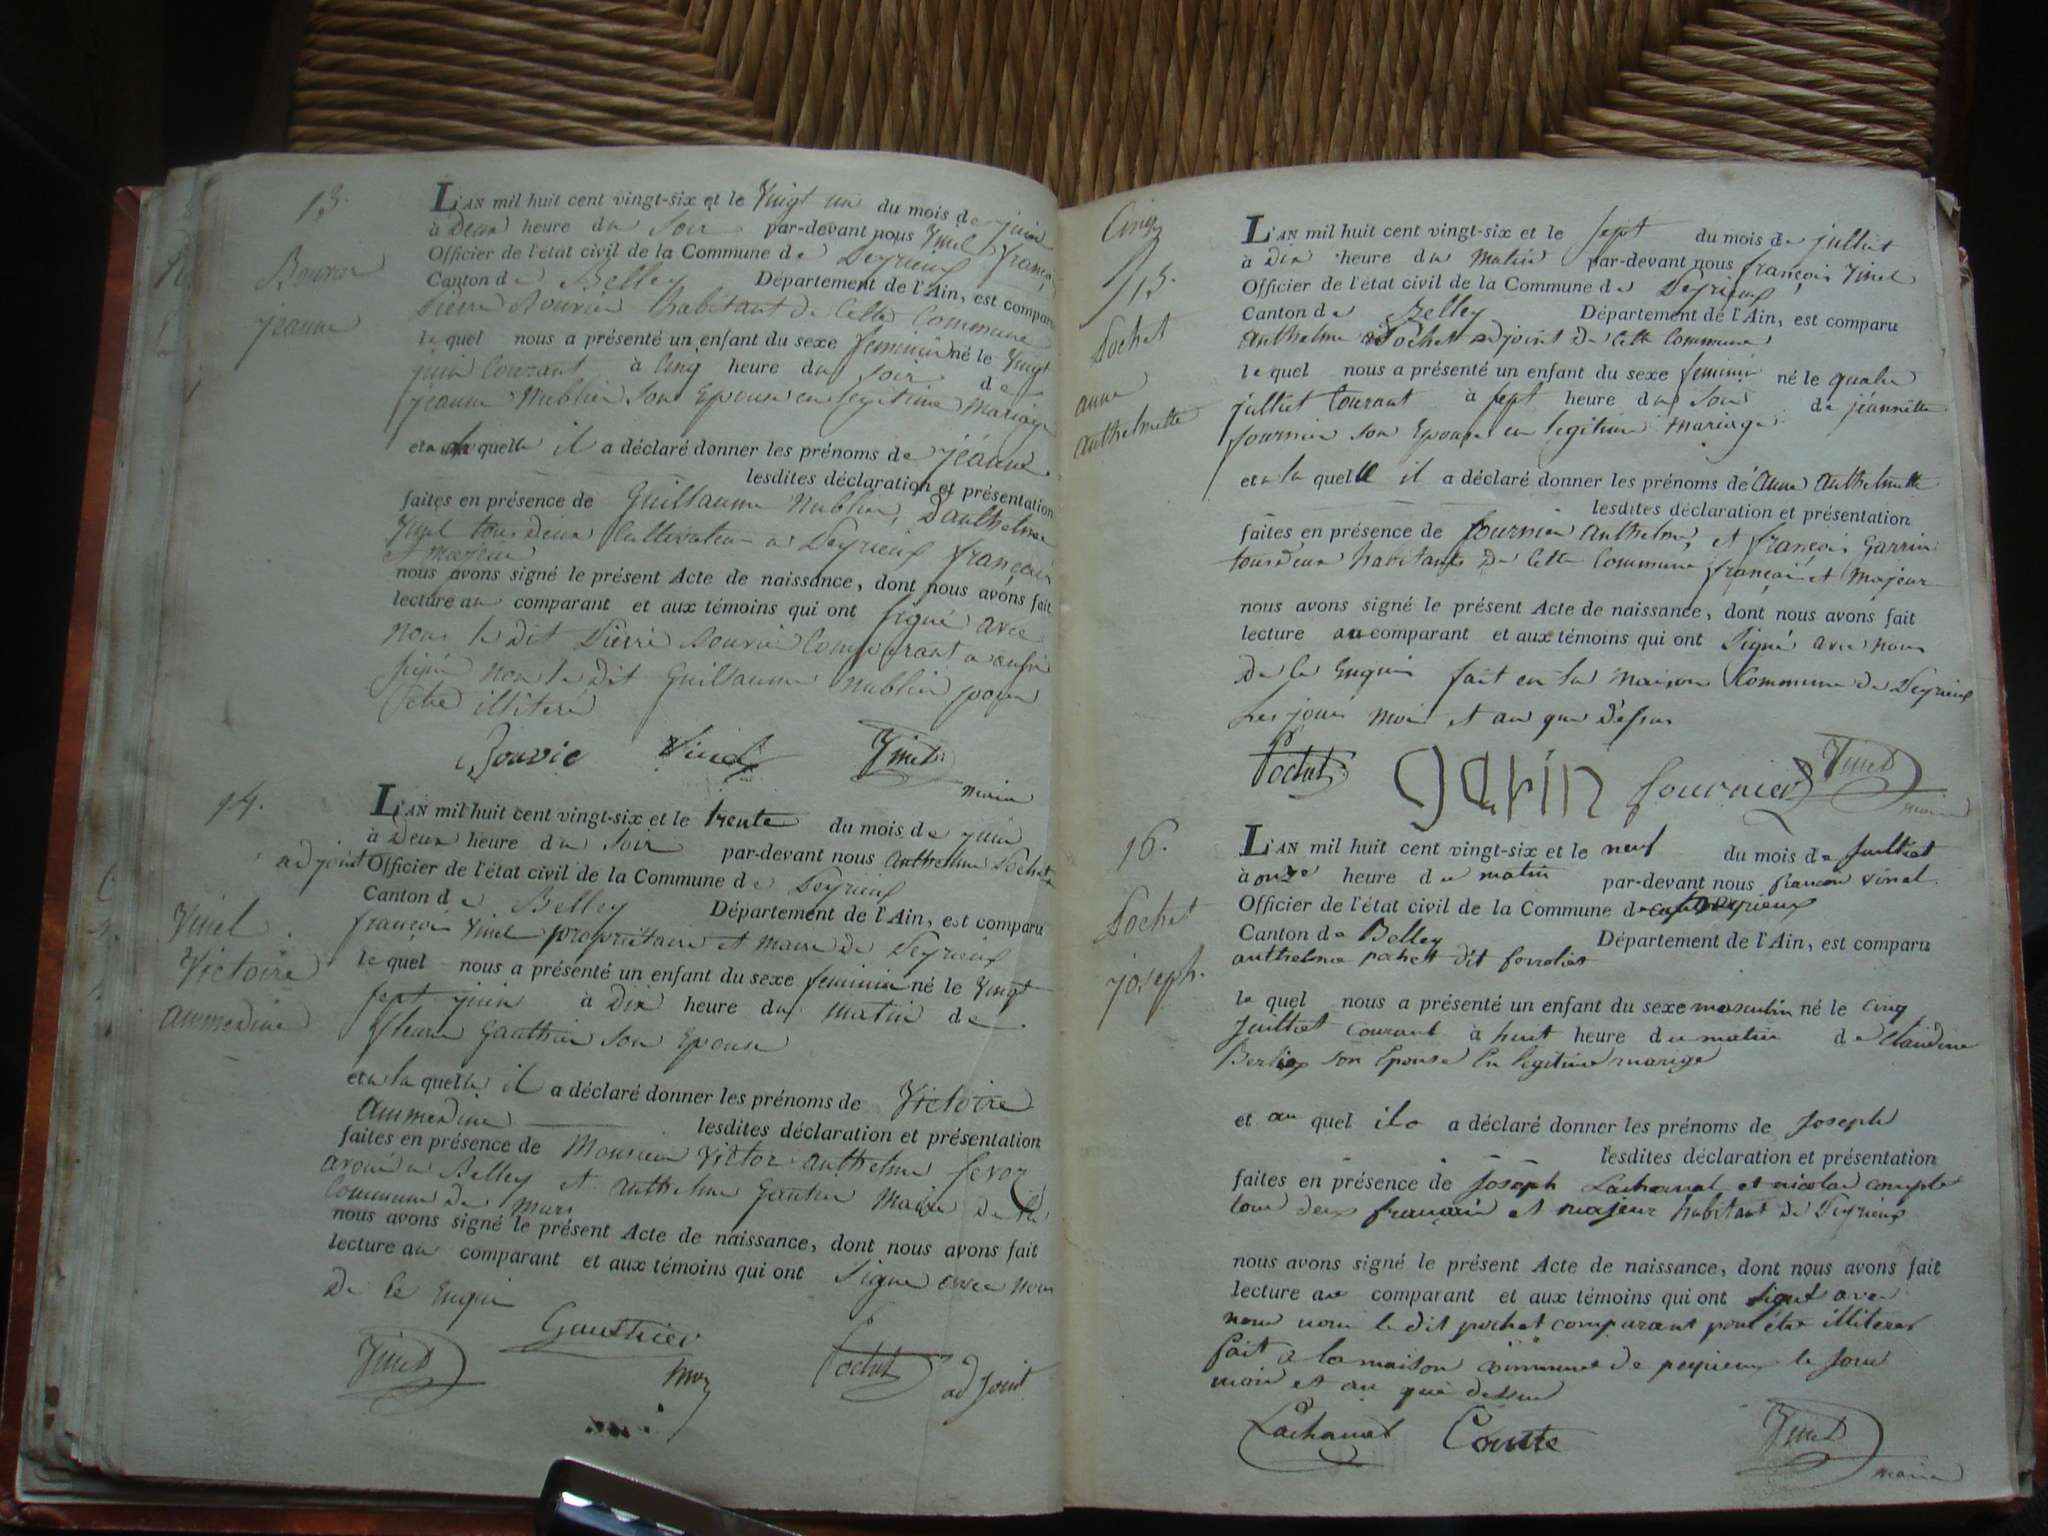 13.
Bouvier
jeanne
L'AN mil huit cent vingt-six et le Vingt un du mois de juin
à Deux heure du Soir par-devant nous Vinel françois
Officier de l'état civil de la Commune de Peyrieux
Canton de Belley Département de l'Ain, est comparu
Pierre Bouvier habitant de Cette Commune
le quel nous a présenté un enfant du sexe feminin né le Vingt
juin Courant à Cinq heure du Soir de
jeanne Nublier Son Epouse en legitime Mariage
et a la quelle il a déclaré donner les prénoms de jéanne
lesdites déclaration et présentation
faites en présence de Guillaume Nublier, D'anthelme
Vinel tous deux Cultivateur a Peyrieux françois
et majeur
nous avons signé le présent Acte de naissance, dont nous avons fait
lecture au comparant et aux témoins qui ont Signé avec
nous le dit Pierre Bouvier Comparant a aussi
signé non le dit Guillaume Nublier pour
être illiteré
Bouvie Vinel Vinel
maire
14.
adjoint
Vinel
Victoire
ammendine
L'AN mil huit cent vingt-six et le trente du mois de juin
à Deux heure du Soir par-devant nous anthelme Pochet
Officier de l'état civil de la Commune de Peyrieux
Canton de Belley Département de l'Ain, est comparu
françois Vinel propriétaire et maire de Peyrieux
le quel nous a présenté un enfant du sexe feminin né le Vingt
sept juin à Dix heure du matin de
fleurie Gauthier Son Epouse
et a la quelle il a déclaré donner les prénoms de Victoire
ammendine lesdites déclaration et présentation
faites en présence de Monsieur Victor anthelme
avoué a Belley et anthelme Gautier Maire de la
Commune de Murs
nous avons signé le présent Acte de naissance, dont nous avons fait
lecture au comparant et aux témoins qui ont Signe avec nous
De Ce Enqui
Vinel Gaustrier Pochet adjoint
Cinq
15.
Pochet
anne
anthelmette
L'AN mil huit cent vingt-six et le sept du mois de julliet
à Dix heure du Matin par-devant nous françois Vinel
Officier de l'état civil de la Commune de Peyrieux
Canton de Belley Département de l'Ain, est comparu
anthelme Pochet adjoint de Cette Commune
le quel nous a présenté un enfant du sexe feminin né le quatre
julliet Courant à sept heure du Soir de jéannette
fournier son Epouse en legitime mariage
et a la quelle il a déclaré donner les prénoms de anne anthelmette
lesdites déclaration et présentation
faites en présence de fournier anthelme, et françois Garrin
tous deux habitants de Cette Commune françois et Majeur
nous avons signé le présent Acte de naissance, dont nous avons fait
lecture au comparant et aux témoins qui ont Signé avec nous
De Ce Enquis fait en la maison Commune de Peyrieux
Les jour mois et an que Dessus
Pochet garin fournier Vinel
maire
16.
Pochet
joseph.
L'AN mil huit cent vingt-six et le neuf du mois de Juilliet
à onze heure du matin par-devant nous francois vinel
Officier de l'état civil de la Commune de peyrieux
Canton de Belley Département de l'Ain, est comparu
anthelme pochet dit
le quel nous a présenté un enfant du sexe masculin né le cinq
Juilliet courant à huit heure du matin de claudine
Berlioz son Epouse En legitime mariage
et au quel il a déclaré donner les prénoms de Joseph
lesdites déclaration et présentation
faites en présence de Joseph Lachanal et nicolas
tous deux francais et majeur habitant de Peyrieux
nous avons signé le présent Acte de naissance, dont nous avons fait
lecture au comparant et aux témoins qui ont signé avec
nous non le dit pochet comparant pour être illiteret
fait a la maison commune de peyrieux le Jour
mois et an que dessus
Lachanal Comte Vinel
maire